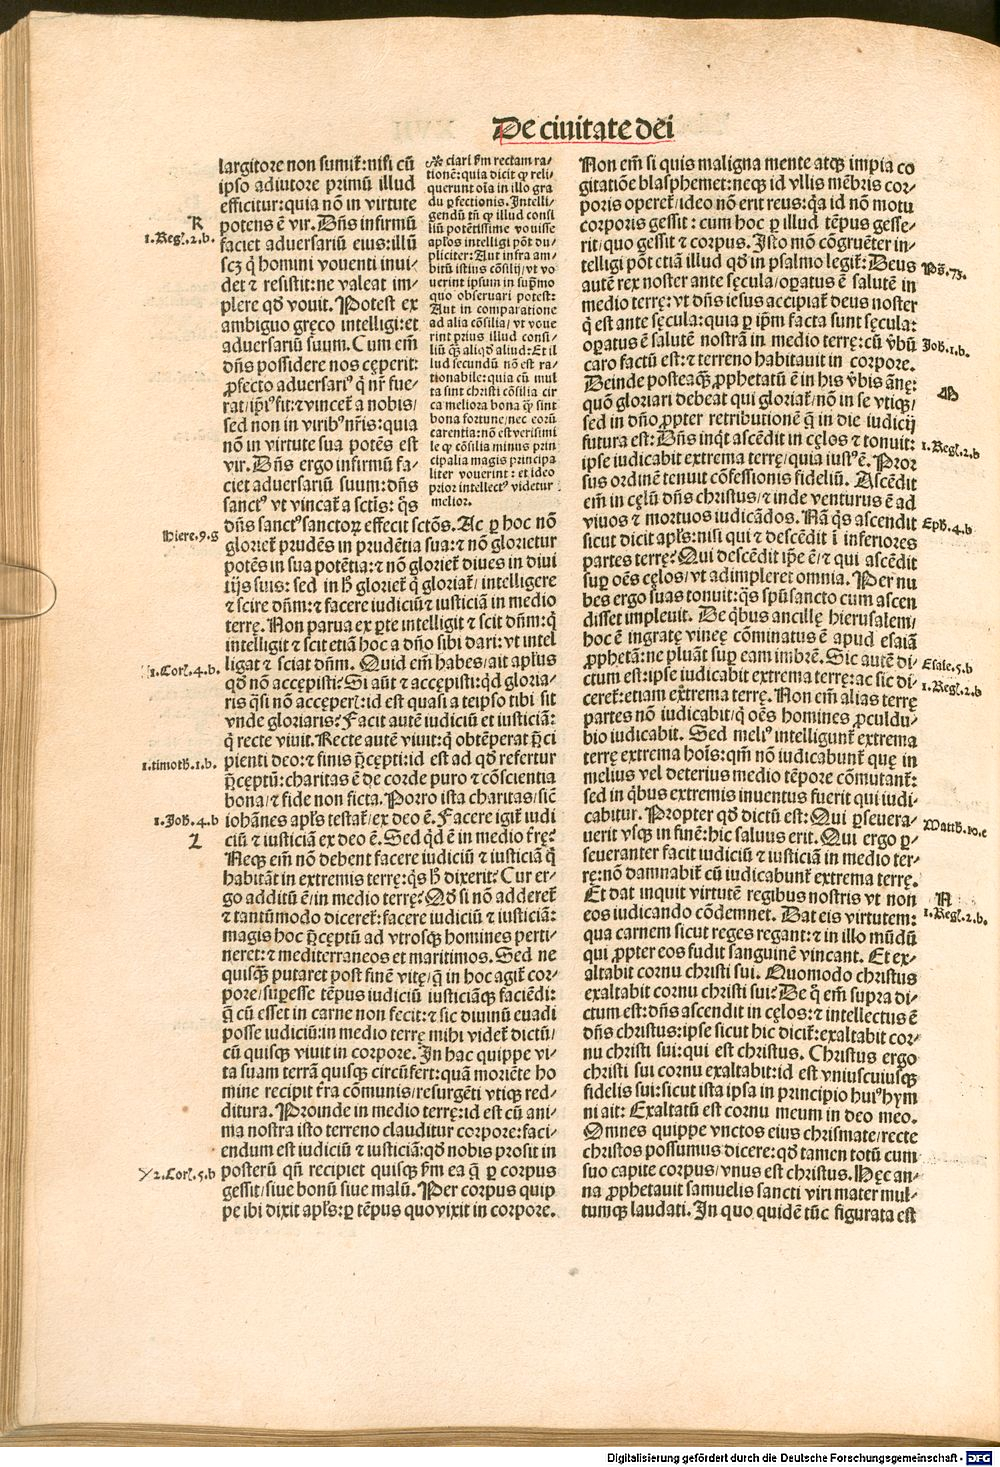 De ciuitate dei
largitore non sumit᷑:nisi cū
ipso adiutore primū illud
efficitur:quia nō in virtute
potens ē vir. Dn̄s infirmū
faciet aduersariū eius:illū
scꝫ q̇ homini vouenti inui⸗
det ⁊ resistit:ne valeat im⸗
plere qd̓ vouit. Potest ex
ambiguo gręco intelligi:et
aduersariū suum. Cum em̄
dn̄s possidere nos cęperit:
ꝓfecto aduersariꝰ q̇ nr̄ fue⸗
rat/ip̄iꝰ fit:⁊ vincet᷑ a nobis/
sed non in viribꝰ nr̄is:quia
nō in virtute sua potēs est
vir. Dn̄s ergo infirmū fa⸗
ciet aduersariū suum:dn̄s
sanctꝰ vt vincat᷑ a sctīs: q̇s
dn̄s sanctꝰ sanctoꝝ effecit sctōs. Ac ꝑ hoc nō
gloriet᷑ prudēs in prudētia sua:⁊ nō glorietur
potēs in sua potētia:⁊ nō gloriet᷑ diues in diui
tijs suis: sed in h̓ gloriet᷑ q̇ gloriat᷑/ intelligere
⁊ scire dn̄m:⁊ facere iudiciū ⁊ iusticiā in medio
terrę. Non parua ex ꝑte intelligit ⁊ scit dn̄m:q̇
intelligit ⁊ scit etiā hoc a dn̄o sibi dari: vt intel
ligat ⁊ sciat dn̄m. Quid em̄ habes/ait apl̓us
qd̓ nō accępisti? Si aūt ⁊ accępisti:qd̓ gloria⸗
ris q̇si nō accęper᷑:id est quasi a teipso tibi sit
vnde gloriaris? Facit autē iudiciū et iusticiā:
q̇ recte viuit. Recte autē viuit:q̇ obtēperat p̄ci
pienti deo:⁊ finis p̄cępti:id est ad qd̓ refertur
p̄ceptū:charitas ē de corde puro ⁊ cōscientia
bona/⁊ fide non ficta. Porro ista charitas/sic̄
iohānes apl̓s testat᷑/ex deo ē. Facere igit᷑ iudi
ciū ⁊ iusticiā ex deo ē. Sed qd̓ ē in medio tr̄ę?
Neqꝫ em̄ nō debent facere iudiciū ⁊ iusticiā q̇
habitāt in extremis terrę:q̇s h̓ dixerit? Cur er⸗
go additū ē/in medio terrę? Qd̓ si nō adderet᷑
⁊ tantūmodo diceret᷑:facere iudiciū ⁊ iusticiā:
magis hoc p̄ceptū ad vtrosqꝫ homines perti⸗
neret:⁊ mediterraneos et maritimos. Sed ne
quisqꝫ̄ putaret post finē vitę/q̄ in hoc agit᷑ cor⸗
pore/suꝑesse tēpus iudiciū iusticiāqꝫ faciēdi:
q̄ cū esset in carne non fecit:⁊ sic diuinū euadi
posse iudiciū:in medio terrę mihi videt᷑ dictū/
cū quisqꝫ viuit in corpore. In hac quippe vi⸗
ta suam terrā quisqꝫ circūfert:quā moriēte ho
mine recipit tr̄a cōmunis/resurgēti vtiqꝫ red⸗
ditura. Proinde in medio terrę:id est cū ani⸗
ma nostra isto terreno clauditur corpore:faci⸗
endum est iudiciū ⁊ iusticiā:qd̓ nobis prosit in
posterū qn̄ recipiet quisqꝫ ẜm ea q̄ ꝑ corpus
gessit/siue bonū siue malū. Per corpus quip
pe ibi dixit apl̓s:ꝑ tēpus quo vixit in corpore.
ciari ẜm rectam ra⸗
tionē:quia dicit ꝙ reli⸗
querunt oīa in illo gra
du ꝑfectionis. Intelli⸗
gendū tn̄ ꝙ illud consi
liū potētissime vouisse
apl̓os intelligi pōt du⸗
pliciter:Aut infra am⸗
bitū istius cōsilij/vt vo
uerint ipsum in sup̄mo
quo obseruari potest:
Aut in comparatione
ad alia cōsilia/vt voue
rint prius illud consi⸗
liū qꝫ̄ aliqd̓ aliud:Et il
lud secundū nō est ra⸗
tionabile:quia cū mul
ta sint christi cōsilia cir
ca meliora bona qꝫ̄ sint
bona fortune/nec eorū
carentia:nō est verisimi
le ꝙ cōsilia minus prin
cipalia magis principa
liter vouerint: et ideo
prior intellectꝰ videtur
melior.
R
1.Reg̓.2.b.
Hiere.9.g
1.Cor̓.4.b.
1.timoth̓.1.b.
1.Joh̓.4.b
L
2.Cor̓.5.b
Non em̄ si quis maligna mente atqꝫ impia co
gitatiōe blasphemet:neqꝫ id vllis mēbris cor⸗
poris operet᷑/ideo nō erit reus:q̇a id nō motu
corporis gessit: cum hoc ꝑ illud tēpus gesse⸗
rit/quo gessit ⁊ corpus. Isto mō cōgruēter in⸗
telligi pōt etiā illud qd̓ in psalmo legit᷑: Deus
autē rex noster ante sęcula/oꝑatus ē salutē in
medio terrę:vt dn̄s iesus accipiat᷑ deus noster
q̇ est ante sęcula:quia ꝑ ip̄m facta sunt sęcula:
oꝑatus ē salutē nostrā in medio terrę:cū v̓bū
caro factū est:⁊ terreno habitauit in corpore.
Deinde posteaqꝫ̄ ꝓphetatū ē in his v̓bis ānę:
quō gloriari debeat qui gloriat᷑/nō in se vtiqꝫ/
sed in dn̄o ꝓpter retributionē q̄ in die iudicij
futura est: Dn̄s inq̇t ascēdit in cęlos ⁊ tonuit:
ipse iudicabit extrema terrę/quia iustꝰ ē. Pror
sus ordinē tenuit cōfessionis fideliū. Ascēdit
em̄ in cęlū dn̄s christus/⁊ inde venturus ē ad
viuos ⁊ mortuos iudicādos. Nā q̇s ascendit
sicut dicit apl̓s:nisi qui ⁊ descēdit ī inferiores
partes terrę? Qui descēdit ip̄e ē/⁊ qui ascēdit
suꝑ oēs cęlos/vt adimpleret omnia. Per nu
bes ergo suas tonuit:q̇s sp̄usancto cum ascen
disset impleuit. De q̇bus ancillę hierusalem/
hoc ē ingratę vineę cōminatus ē apud esaiā
ꝓphetā:ne pluāt suꝑ eam imbrē. Sic autē di⸗
ctum est:ipse iudicabit extrema terrę:ac sic di⸗
ceret᷑:etiam ext̓rema terrę. Non em̄ alias terrę
partes nō iudicabit/q̇ oēs homines ꝓculdu⸗
bio iudicabit. Sed meliꝰ intelligunt᷑ extrema
terrę extrema hoīs:qm̄ nō iudicabunt᷑ quę in
melius vel deterius medio tēpore cōmutant᷑:
sed in q̇bus extremis inuentus fuerit qui iudi⸗
cabitur. Propter qd̓ dictū est: Qui ꝑseuera⸗
uerit vsqꝫ in finē:hic saluus erit. Qui ergo ꝑ⸗
seueranter facit iudiciū ⁊ iusticiā in medio ter⸗
rę:nō damnabit᷑ cū iudicabunt᷑ extrema terrę.
Et dat inquit virtutē regibus nostris vt non
eos iudicando cōdemnet. Dat eis virtutem:
qua carnem sicut reges regant:⁊ in illo mūdū
qui ꝓpter eos fudit sanguinē vincant. Et ex⸗
altabit cornu christi sui. Quomodo christus
exaltabit cornu christi sui? De q̇ em̄ supra di⸗
ctum est:dn̄s ascendit in cęlos:⁊ intellectus ē
dn̄s christus:ipse sicut hic dicit᷑:exaltabit cor⸗
nu christi sui:qui est christus. Christus ergo
christi sui cornu exaltabit:id est vniuscuiusqꝫ
fidelis sui:sicut ista ipsa in principio huiꝰ hym
ni ait: Exaltatū est cornu meum in deo meo.
Omnes quippe vnctos eius chrismate/recte
christos possumus dicere:qd̓ tamen totū cum
suo capite corpus/vnus est christus. Hęc an⸗
na ꝓphetauit samuelis sancti viri mater mul⸗
tumqꝫ laudati. In quo quidē tūc figurata est
Ps̄.73.
Joh̓.1.b.
M
1.Reg̓.2.b
Eph̓.4.b
Esaie.5.b
1.Reg̓.2.b
Matth̓.10.c
N
1.Reg̓.2.b.
Digitalisierung gefördert durch die Deutsche Forschungsgemeinschaft - DFG